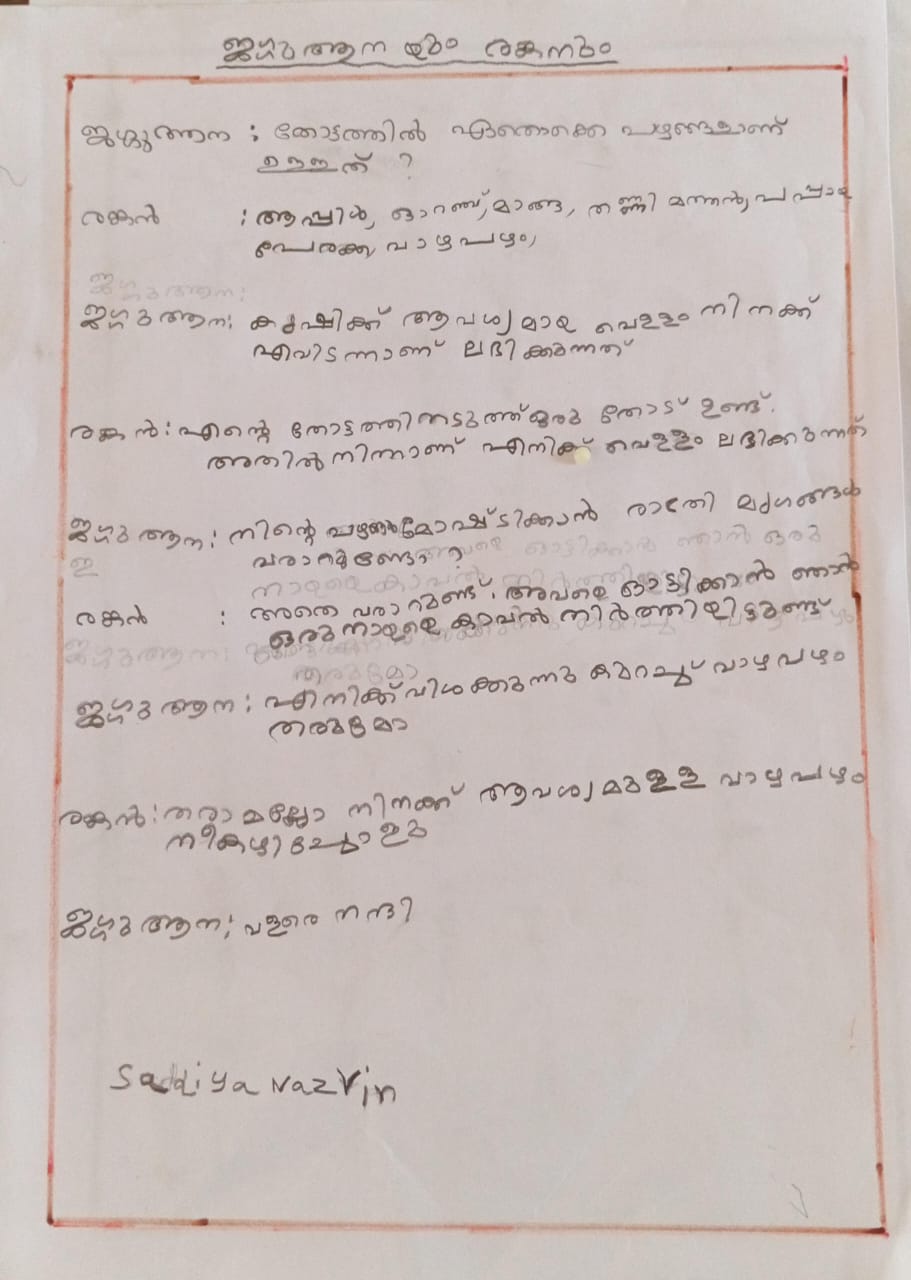 ജഗ്ഗു ആന യും രങ്കനും
ജഗ്ഗു ആന : തോട്ടത്തിൽ ഏതൊക്കെ പഴങ്ങളാണ്
ഉള്ളത് ?
രങ്കൻ : ആപ്പിൾ, ഓറഞ്ച്, മാങ്ങ, തണ്ണി മത്തൻ, പപ്പായ
പേരക്ക, വാഴ പഴം,
ജഗ്ഗു ആന:
ജഗ്ഗു ആന: കൃഷിക്ക് ആവശ്യമായ വെള്ളം നിനക്ക്
എവിടന്നാണ് ലഭിക്കുന്നത്
രങ്കൻ: എന്റെ തോട്ടത്തിനടുത്ത് ഒരു തോട് ഉണ്ട്.
അതിൽ നിന്നാണ് എനിക്ക് വെള്ളം ലഭിക്കുന്നത്
ജഗ്ഗു ആന: നിന്റെ പഴങ്ങൾ മോഷ്ടിക്കാൻ രാത്രി മൃഗങ്ങൾ
വരാറുണ്ടോ ?
രങ്കൻ : അതെ വരാറുണ്ട്. അവരെ ഓട്ടിക്കാൻ ഞാൻ
ഒരു നായയെ കാവൽ നിർത്തിയിട്ടുണ്ട്
ജഗ്ഗു ആന: എനിക്ക് വിശക്കുന്നു കുറച്ചു വാഴ പഴം
തരുമോ
രങ്കൻ: തരാമല്ലോ നിനക്ക് ആവശ്യമുള്ള വാഴ പഴം
നീ കഴിച്ചോളു
ജഗ്ഗു ആന: വളരെ നന്ദി
Saddiya Nazrin